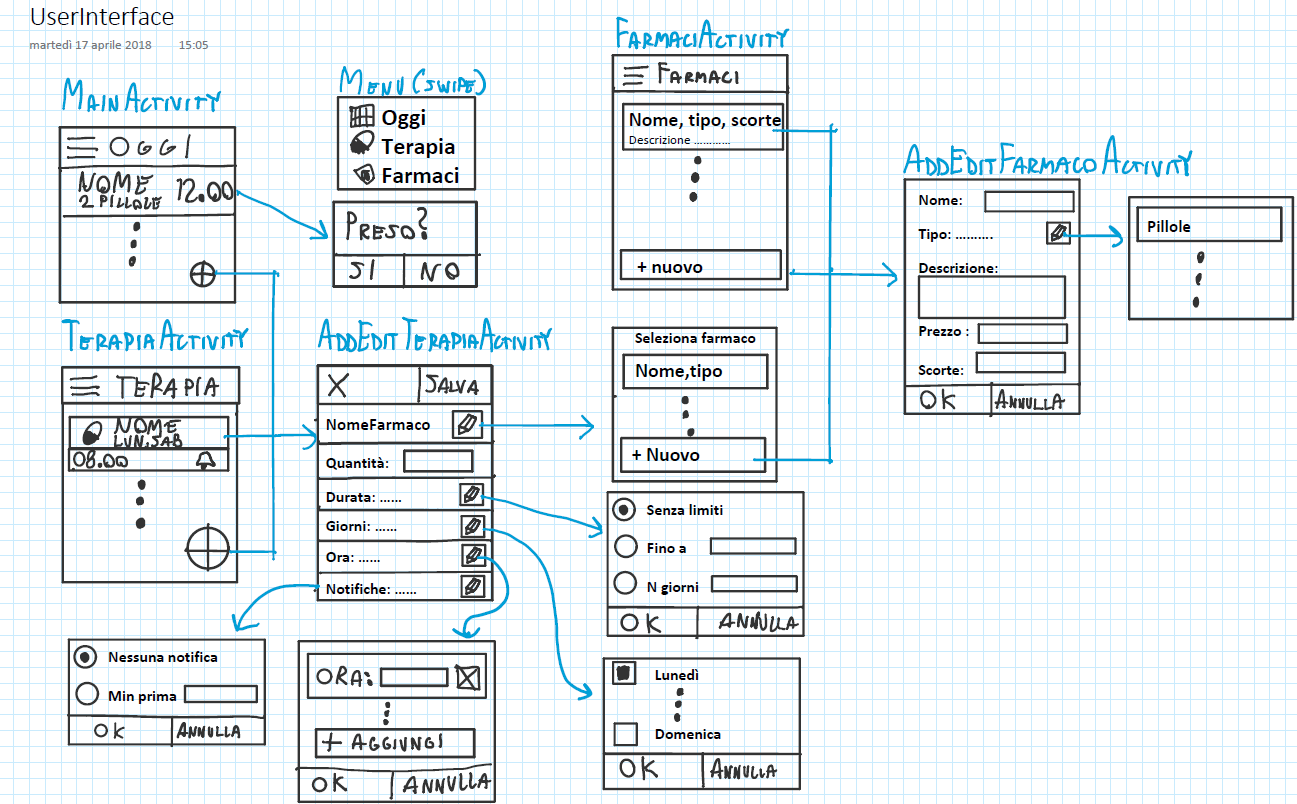 UserInterface
martedì 17 aprile 2018 15:05
MAINACTIVITY
OGGI
NOME 12.00
2 PILLOLE
MENU (SWIPE)
Oggi
Terapia
Farmaci
PRESO?
SI NO
FARMACIACTIVITY
FARMACI
Nome, tipo, scorte
Descrizione ............
+ nuovo
ADDEDITFARMACOACTIVITY
Nome:
Tipo: ..........
Descrizione:
Prezzo :
Scorte:
OK ANNULLA
Pillole
TERAPIAACTIVITY
TERAPIA
NOME
LUN, SAB
08.00
ADDEDITTERAPIAACTIVITY
X SALVA
NomeFarmaco
Quantità:
Durata: ......
Giorni: ......
Ora: ......
Notifiche: ......
Seleziona farmaco
Nome,tipo
+ Nuovo
Senza limiti
Fino a
N giorni
OK ANNULLA
Nessuna notifica
Min prima
OK ANNULLA
ORA:
+ AGGIUNGI
OK ANNULLA
Lunedì
Domenica
OK ANNULLA